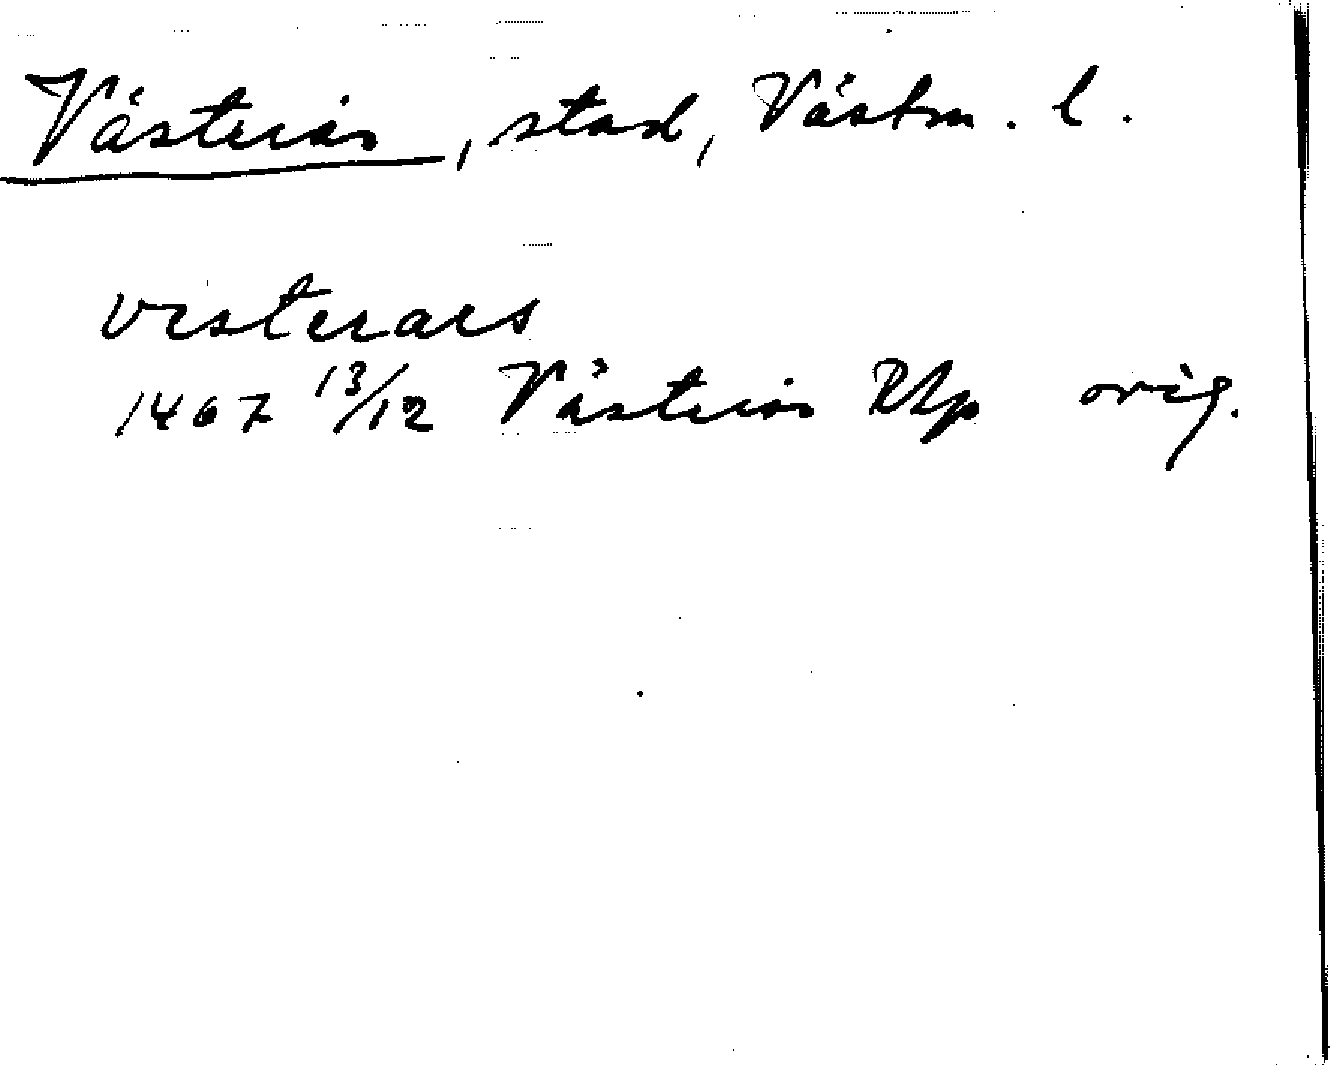 Västerås, stad, Västm. l.
vesteraes
1467 13/12 Västerås RAp orig.